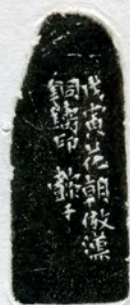 戊寅花朝倣漢
銅鑄印 懿子